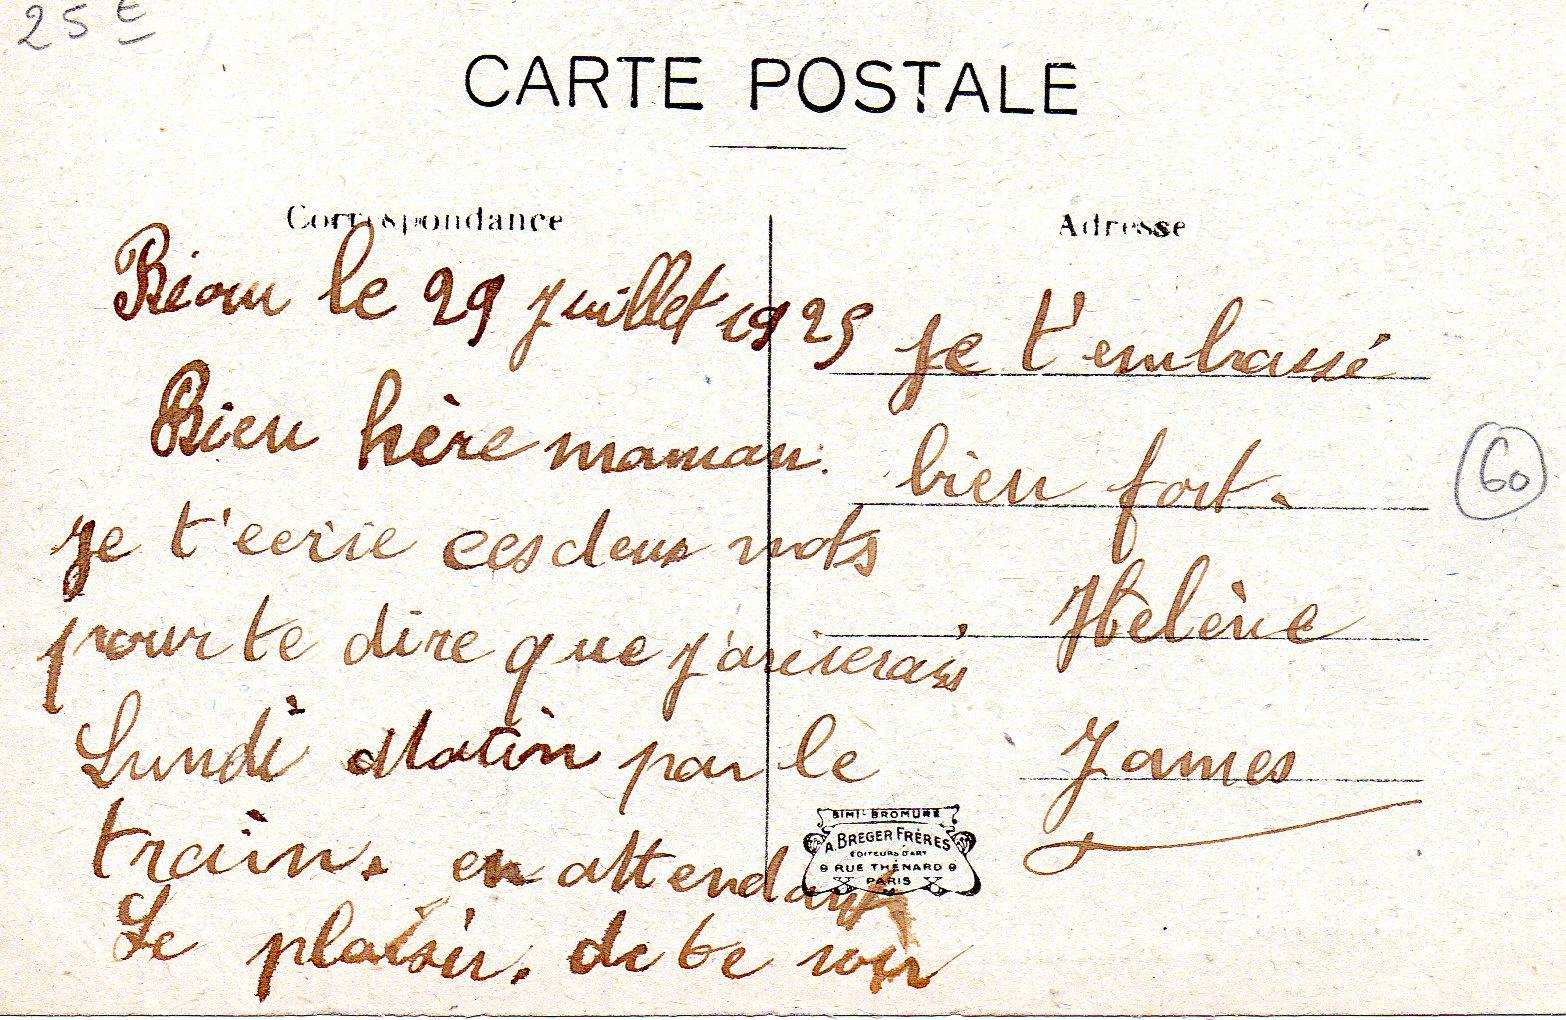 25 €
CARTE POSTALE
Correspondance
Riom le 29 Juillet 1925
Bien hère maman.
Je t'ecrie ces deux mots
pour te dire que j'ariverais
Lundi Matin par le
train. en attendant
Le plaisir. de te voir
Adresse
Je t'embrassé
bien fort.
Helène
James
60
SIMI-BROMURE
A. BREGER FRÈRES
ÉDITEURS D'ART
9 RUE THÉNARD 9
PARIS